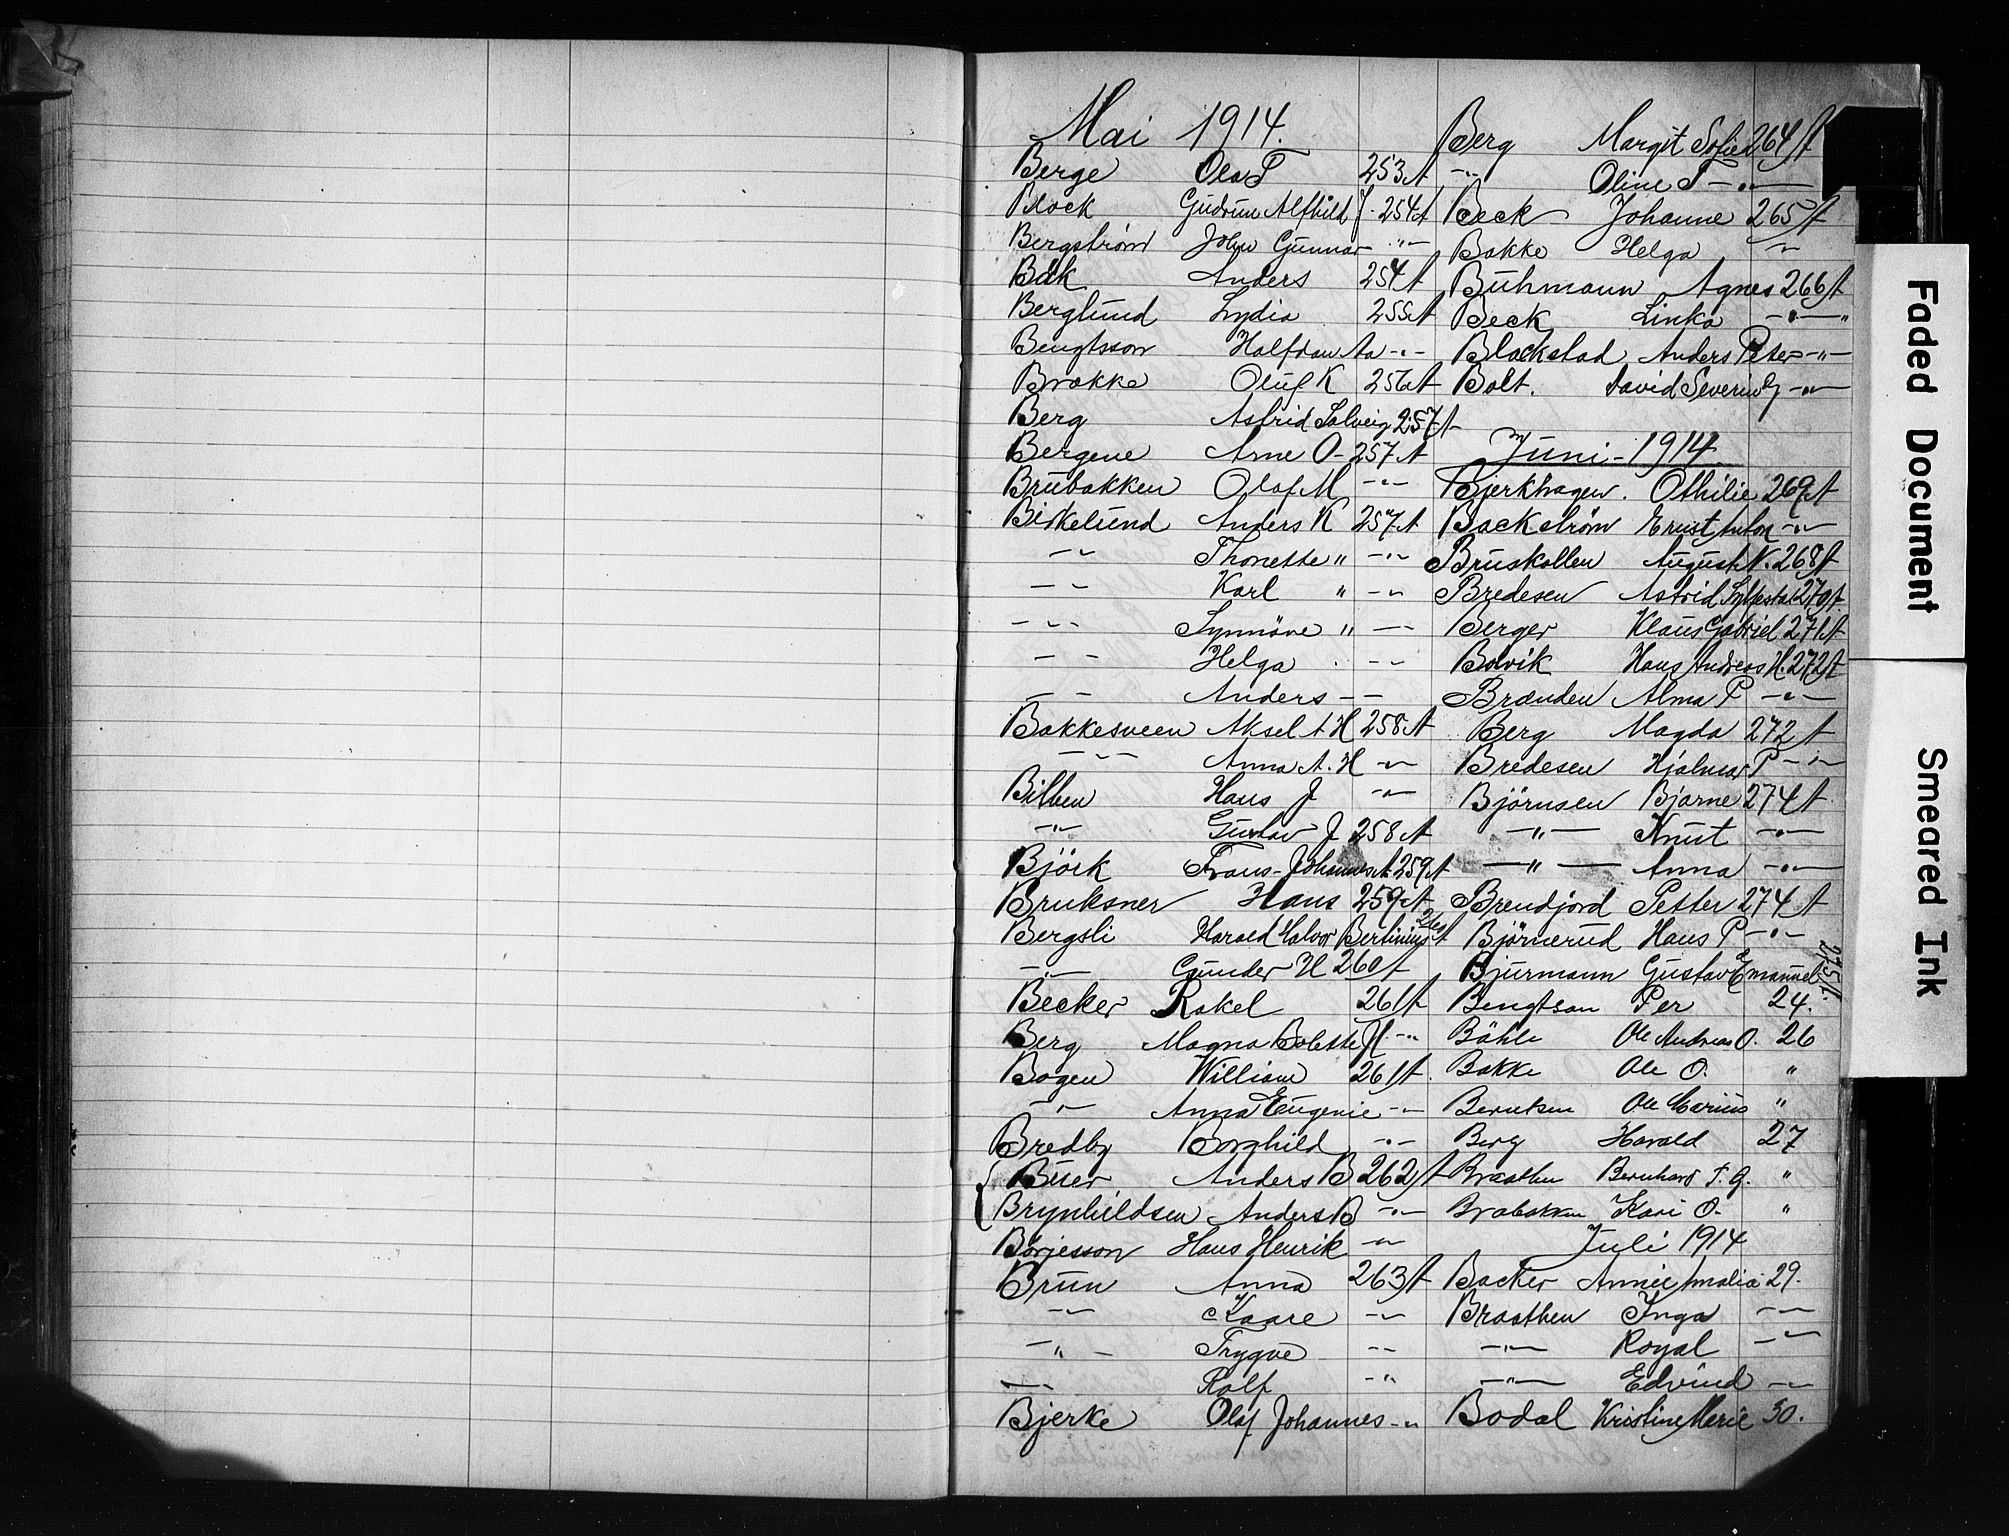 Mai 1914.
Berge Ola T 253 A
Block Gudrun Alfhild J. 254 A
Bergström John Gunnar -"-
Bäk Anders 254 A
Berglund Lydia 255 A
Bengtsson Halfdan Aa -"-
Brakke Oluf K 256 A
Berg Astrid Solveig 257 A
Bergene Arne O - 257 A
Brubakken Olaf M -"-
Birkelund Anders K 257 A
-"- Thonette " -"-
-"- Karl " -"-
-"- Synnöve " -"-
-"- Helga -"-
-"- Anders -"-
Bakkesveen Aksel A H 258 A
-"- Anna A. H -"-
Bilben Hans J -"-
-"- Gustav J 258 A
Björk Frans-Johannes A 259 A
Bruksner Hans 259 A
Bergsli Harald Halvor Bertinius 260 A
-"- Gunder H 260 A
Becker Rakel 261 A
Berg Magna Bolette H. -"-
Bogen William 261 A.
-"- Anna Eugenie -"-
Bredby Borghild -"-
Buer Anders B 262 A
Brynhildsen Anders B -"-
Börjesson Hans Henrik -"-
Brun Anna 263 A
-"- Kaare -"-
-"- Trygve -"-
-"- Rolf -"-
Bjerke Olaf Johannes -"-
Berg Margit Sofie 264 A
-"- Oline T -"-
Beck Johanne 265 A
Bakke Helga -"-
Buhmann Agnes 266 A
Beck Linka -"-
Blackstad Anders Peter -"-
Bolt. David Severin G -"-
Juni - 1914.
Bjerkhagen. Othilie 269 A
Backström Ernst Anton -"-
Bruskollen August N. 268 A
Bredesen Astrid 270 A
Berger Klaus Gabriel 271 A
Bolvik Hans Andreas H. 272 A
Brænden Alma P -"-
Berg Magda 272 A
Bredesen Hjalmar P -"-
Björnsen Bjarne 274 A
-"- Knut -"-
-"- Anna -"-
Brendjord Petter 274 A
Björnerud Hans P -"-
Bjurmann Gustav Emanuel 275 A.
Bengtson Per 24.
Böhle Ole Andreas O. 26
Bakke Ole O. "
Berntsen Ole Marius "
Berg Harald 27
Braathen Bernhard F. G. "
Brabakken Kari O. "
Juli 1914
Backer Annie Amalia 29.
Braathen Inga -"-
-"- Royal -"-
-"- Edvind -"-
Bodal Kristine Marie 30.
Faded Document
Smeared Ink